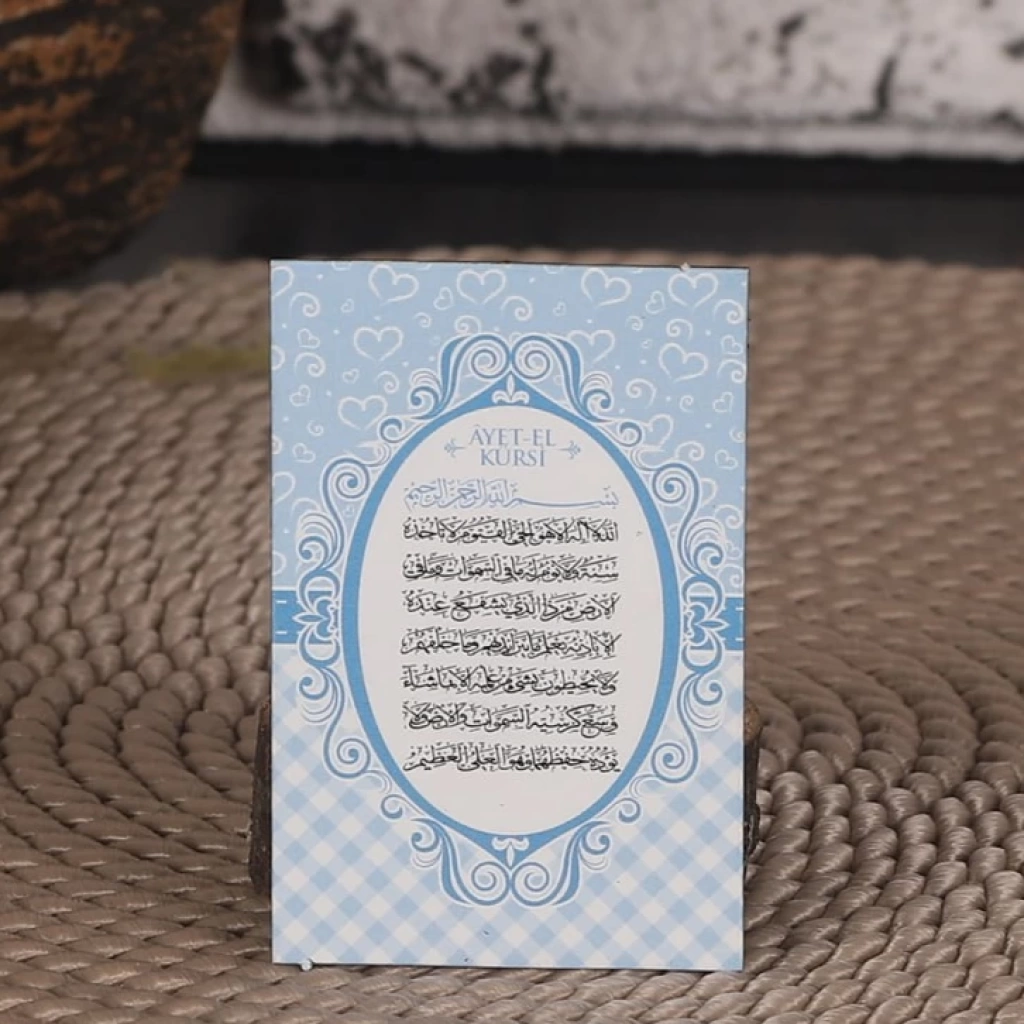 ÂYET-EL
KÜRSİ
بسم الله الرحمن الرحيم
الله لا اله الا هو الحي القيوم لا تأخذه
سنة ولا نوم له ما في السموات وما في
الارض من ذا الذي يشفع عنده
الا باذنه يعلم ما بين ايديهم وما خلفهم
ولا يحيطون بشيء من علمه الا بما شاء
وسع كرسيه السموات والارض ولا
يؤده حفظهما وهو العلي العظيم